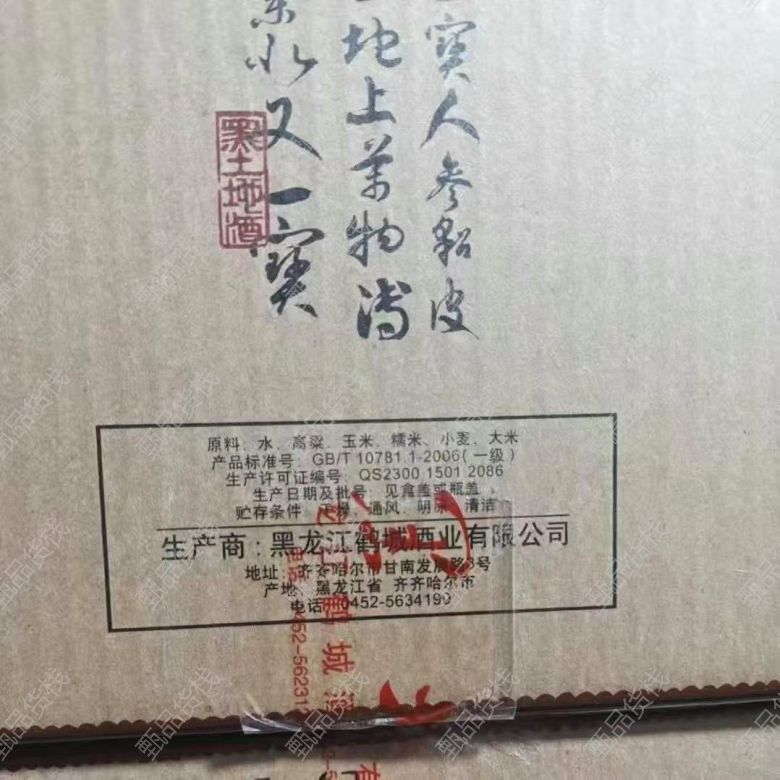 宝人参貂皮
地上万物溥
东北又一宝
黑土地酒
原料：水、高粱、玉米、糯米、小麦、大米
产品标准号：GB/T 10781.1-2006(一级)
生产许可证编号：QS2300 1501 2086
生产日期及批号：见盒盖或瓶盖
贮存条件：干燥、通风、阴凉、清洁
生产商：黑龙江鹤城酒业有限公司
地址：齐齐哈尔市甘南发展路3号
产地：黑龙江省 齐齐哈尔市
电话：0452-5634199
江鹤城酒
甄品货栈